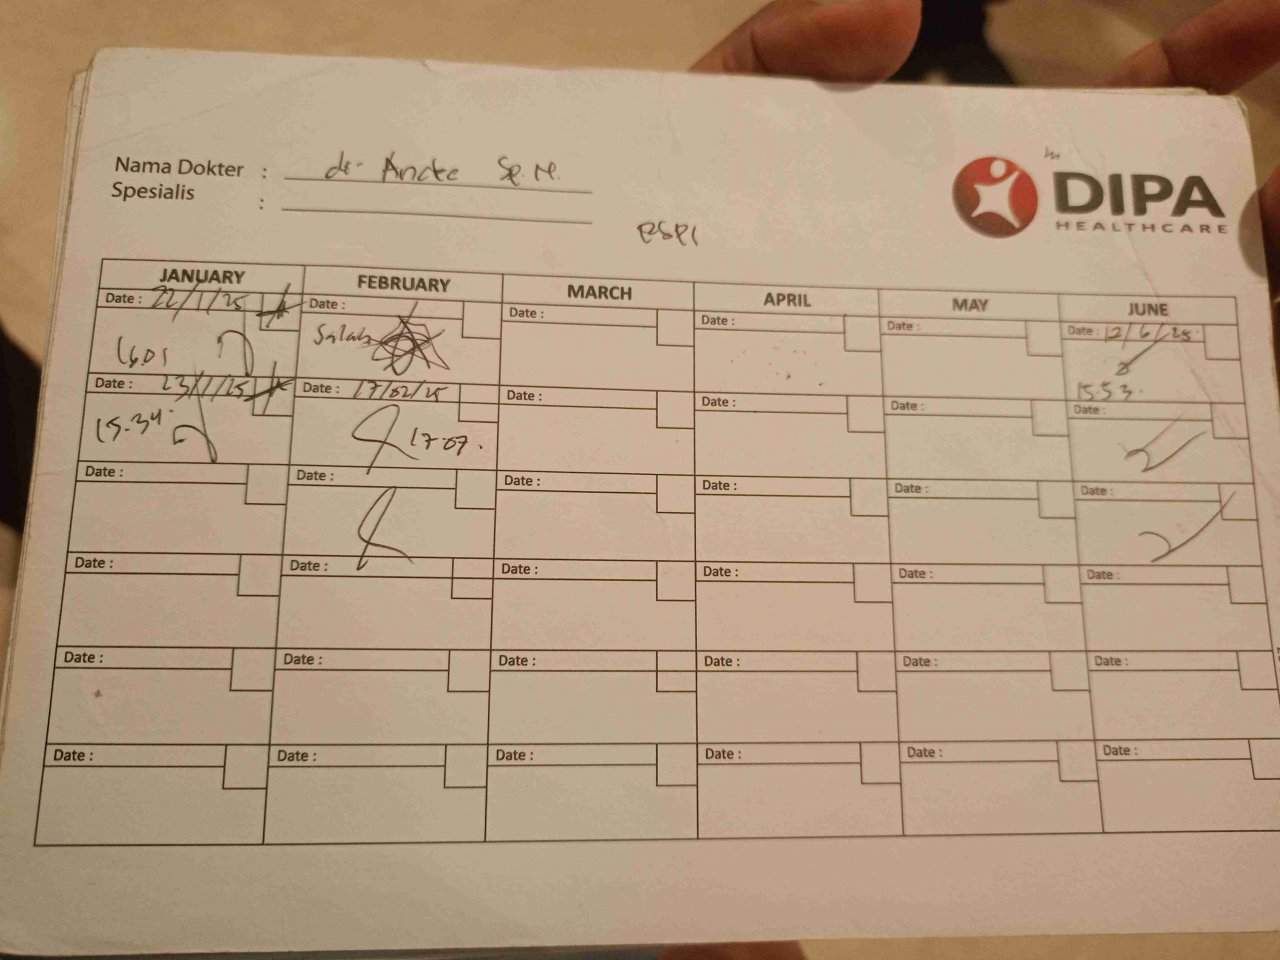 Nama Dokter : dr. Andre Sp.N.
Spesialis :
DIPA
HEALTHCARE
JANUARY FEBRUARY MARCH APRIL MAY JUNE
Date : 22/1/25 Date : Date : Date : Date : Date : 12/6/25
1601 Salah 15.53.
Date : 23/1/25 Date : 17/02/25 Date : Date : Date : Date :
15.34 17.07.
Date : Date : Date : Date : Date : Date :
Date : Date : Date : Date : Date : Date :
Date : Date : Date : Date : Date : Date :
Date : Date : Date : Date : Date : Date :